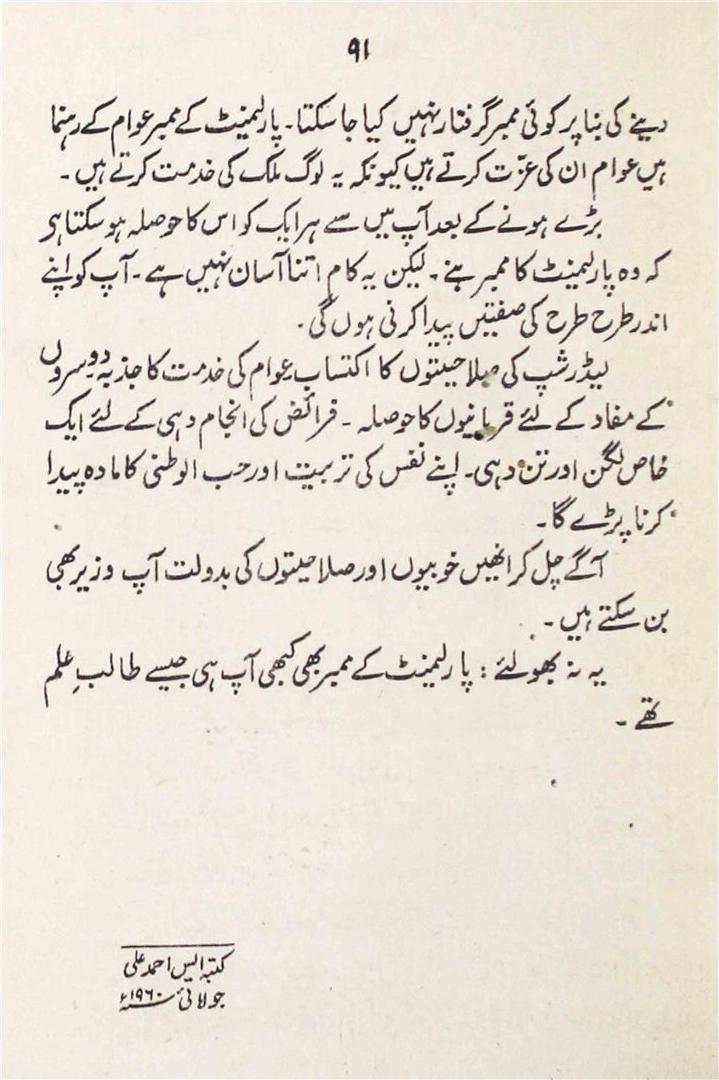 ۹۱
دینے کی بنا پر کوئی ممبر گرفتار نہیں کیا جا سکتا۔ پارلیمنٹ کے ممبر عوام کے رہنما
ہیں عوام ان کی عزّت کرتے ہیں کیونکہ یہ لوگ ملک کی خدمت کرتے ہیں۔
بڑے ہونے کے بعد آپ میں سے ہر ایک کو اس کا حوصلہ ہو سکتا ہر
کہ وہ پارلیمنٹ کا ممبر بنے۔ لیکن یہ کام اتنا آسان نہیں ہے۔ آپ کو اپنے
اندر طرح طرح کی صفتیں پیدا کرنی ہوں گی۔
لیڈرشپ کی صلاحیتوں کا اکتساب عوام کی خدمت کا جذبہ دوسروں
کے مفاد کے لئے قربانیوں کا حوصلہ۔ فرائض کی انجام دہی کے لئے ایک
خاص لگن اور تن دہی۔ اپنے نفس کی تربیت اور حب الوطنی کا مادہ پیدا
کرنا پڑے گا۔
آگے چل کر انھیں خوبیوں اور صلاحیتوں کی بدولت آپ وزیر بھی
بن سکتے ہیں۔
یہ نہ بھولئے: پارلیمنٹ کے ممبر بھی کبھی آپ ہی جیسے طالبِ علم
تھے۔
کتبہ ایس احمد علی
جولائی سنہ ۱۹۶۰ء